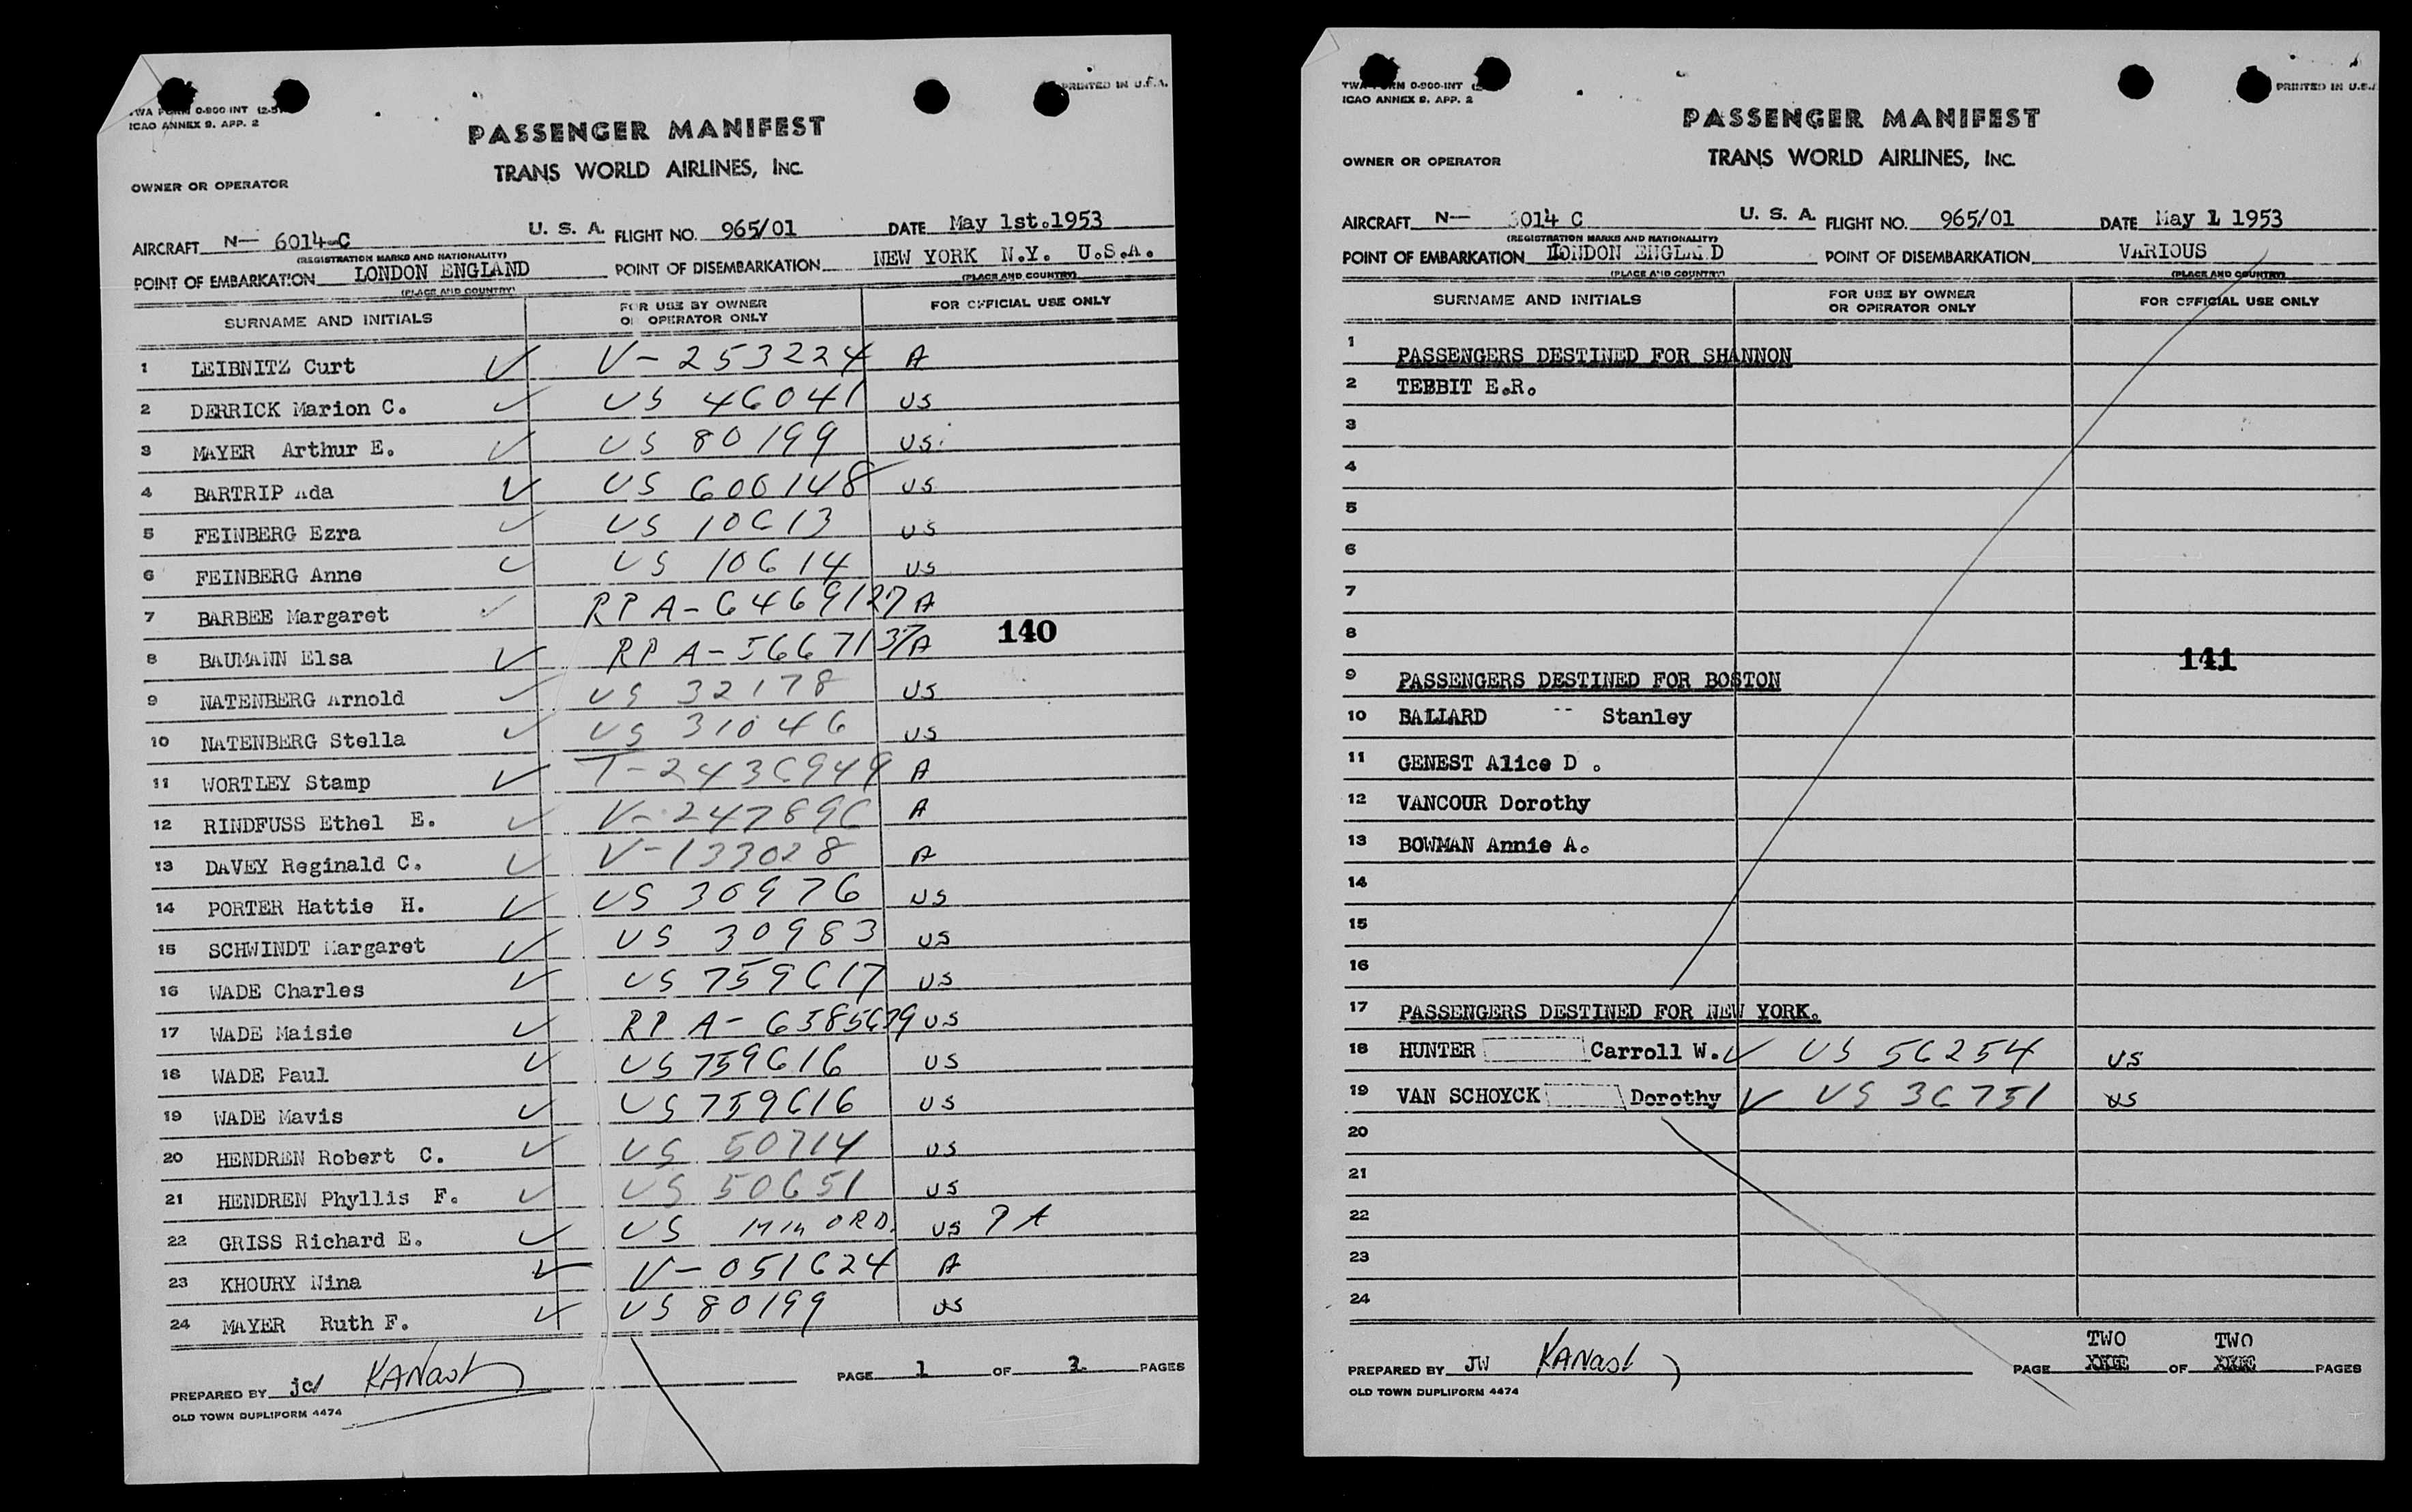 TWA FORM 0-900 INT (2-51)
ICAO ANNEX 9. APP. 2
PRINTED IN U.S.A.
PASSENGER MANIFEST
TRANS WORLD AIRLINES, INC.
OWNER OR OPERATOR
AIRCRAFT N— 6014-C U. S. A. FLIGHT NO. 965/01 DATE May 1st.1953
(REGISTRATION MARKS AND NATIONALITY)
POINT OF EMBARKATION LONDON ENGLAND POINT OF DISEMBARKATION NEW YORK N.Y. U.S.A.
(PLACE AND COUNTRY) (PLACE AND COUNTRY)
SURNAME AND INITIALS FOR USE BY OWNER OR OPERATOR ONLY FOR OFFICIAL USE ONLY
1 LEIBNITZ Curt ✓ V-253224 A
2 DERRICK Marion C. ✓ US 46041 US
3 MAYER Arthur E. ✓ US 80199 US
4 BARTRIP Ada ✓ US 600148 US
5 FEINBERG Ezra ✓ US 10613 US
6 FEINBERG Anne ✓ US 10614 US
7 BARBEE Margaret ✓ RP A-6469127 A
8 BAUMANN Elsa ✓ RP A-5667137 A
140
9 NATENBERG Arnold ✓ US 32178 US
10 NATENBERG Stella ✓ US 31046 US
11 WORTLEY Stamp ✓ T-2436949 A
12 RINDFUSS Ethel E. ✓ V-247896 A
13 DAVEY Reginald C. ✓ V-133028 A
14 PORTER Hattie H. ✓ US 30976 US
15 SCHWINDT Margaret ✓ US 30983 US
16 WADE Charles ✓ US 759617 US
17 WADE Maisie ✓ RP A-6385639 US
18 WADE Paul ✓ US 759616 US
19 WADE Mavis ✓ US 759616 US
20 HENDREN Robert C. ✓ US 50714 US
21 HENDREN Phyllis F. ✓ US 50651 US
22 GRISS Richard E. ✓ US ORD. US
23 KHOURY Nina ✓ V-051624 A
24 MAYER Ruth F. ✓ US 80199 US
PREPARED BY PAGE 1 OF 2 PAGES
OLD TOWN DUPLIFORM 4474
TWA FORM 0-900-INT
ICAO ANNEX 9. APP. 2
PRINTED IN U.S.A.
PASSENGER MANIFEST
TRANS WORLD AIRLINES, INC.
OWNER OR OPERATOR
AIRCRAFT N— 6014 C U. S. A. FLIGHT NO. 965/01 DATE May 1 1953
(REGISTRATION MARKS AND NATIONALITY)
POINT OF EMBARKATION LONDON ENGLAND POINT OF DISEMBARKATION VARIOUS
(PLACE AND COUNTRY) (PLACE AND COUNTRY)
SURNAME AND INITIALS FOR USE BY OWNER OR OPERATOR ONLY FOR OFFICIAL USE ONLY
1 PASSENGERS DESTINED FOR SHANNON
2 TEBBIT E.R.
3
4
5
6
7
8
141
9 PASSENGERS DESTINED FOR BOSTON
10 BALLARD -- Stanley
11 GENEST Alice D .
12 VANCOUR Dorothy
13 BOWMAN Annie A.
14
15
16
17 PASSENGERS DESTINED FOR NEW YORK.
18 HUNTER Carroll W. ✓ US 56254 US
19 VAN SCHOYCK Dorothy ✓ US 36751 US
20
21
22
23
24
TWO TWO
PREPARED BY JW PAGE OF PAGES
OLD TOWN DUPLIFORM 4474